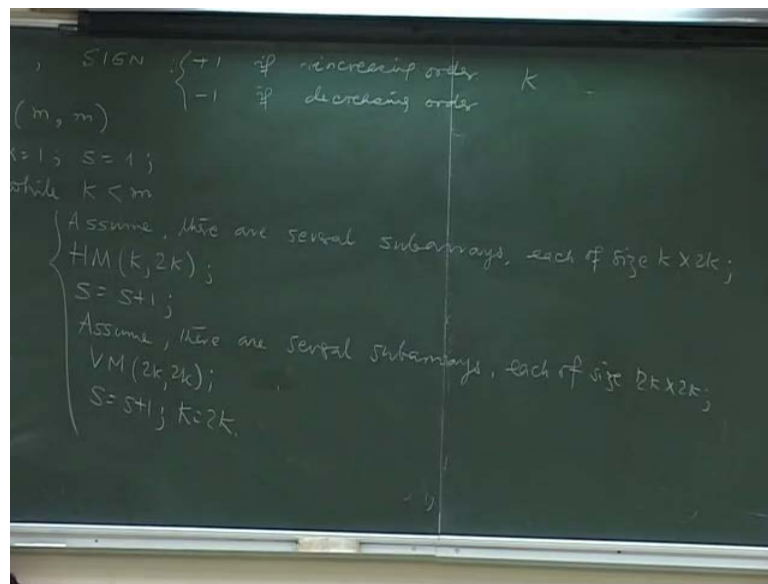 , SIGN : { +1 if increasing order K
-1 if decreasing order
(m, m)
K=1; S=1;
while K < m
Assume, there are several subarrays, each of size K X 2K;
HM(K, 2K);
S= S+1;
Assume, there are several subarrays, each of size 2K X 2K;
VM(2K, 2K);
S= S+1; K=2K.